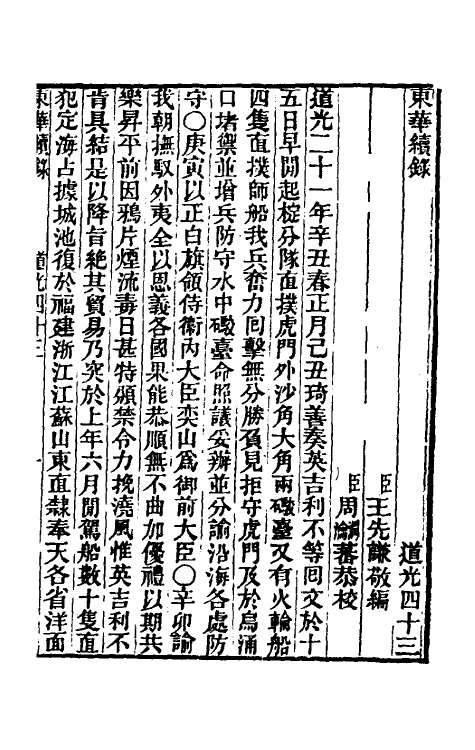 東華續錄
道光四十三
臣王先謙敬編
臣周瀹蕃恭校
道光二十一年辛丑春正月己丑琦善奏英吉利不等囘文於十
五日早開起椗分隊直撲虎門外沙角大角兩礮臺又有火輪船
四隻直撲師船我兵奮力囘擊無分勝負見拒守虎門及於烏涌
口堵禦並增兵防守水中礮臺命照議妥辦並分諭沿海各處防
守〇庚寅以正白旗領侍衞內大臣奕山爲御前大臣〇辛卯諭
我朝撫馭外夷全以恩義各國果能恭順無不曲加優禮以期共
樂昇平前因鴉片煙流毒日甚特頒禁令力挽澆風惟英吉利不
肯具結是以降旨絕其貿易乃突於上年六月間駕船數十隻直
犯定海占據城池復於福建浙江江蘇山東直隸奉天各省洋面
東華續錄 道光四十三 一